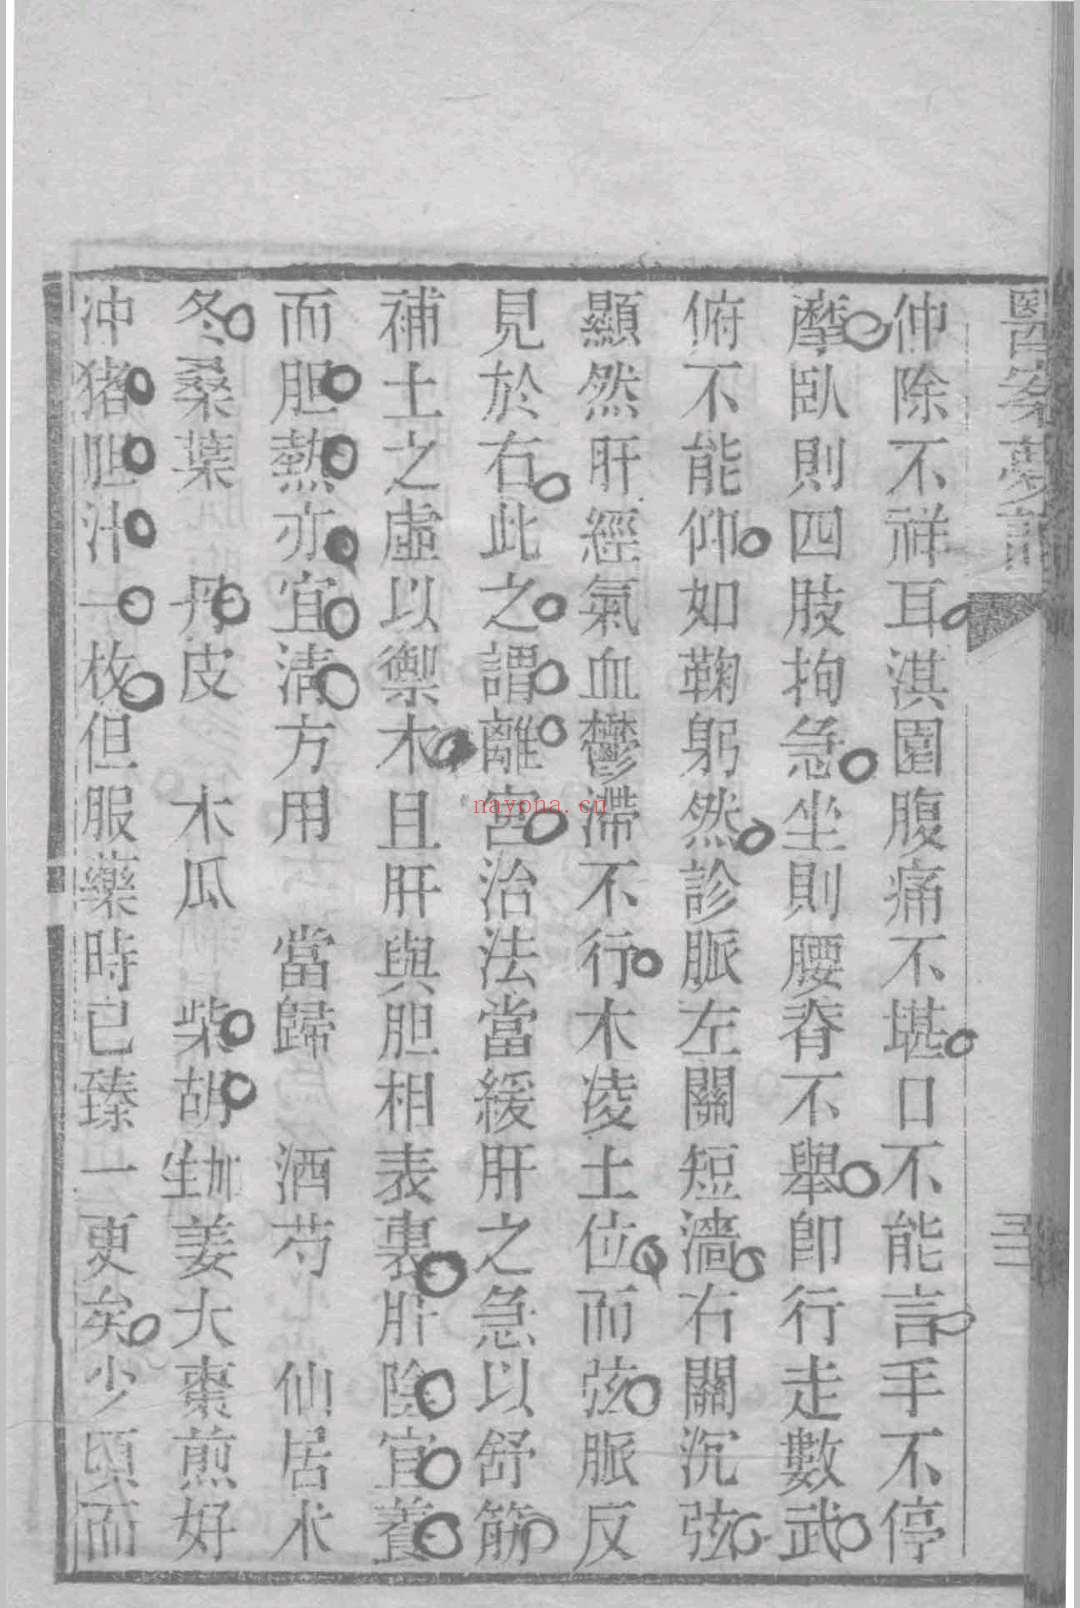 醫案夢記
仲除不祥耳淇園腹痛不堪口不能言手不停
摩臥則四肢拘急坐則腰脊不舉卽行走數武
俯不能仰如鞠躬然診脈左關短濇右關沉弦
顯然肝經氣血鬱滯不行木凌土位而弦脈反
見於右此之謂離宮治法當緩肝之急以舒筋
補土之虛以禦木且肝與胆相表裏肝陰宜養
而胆熱亦宜清方用　當歸　酒芍　仙居朮
冬桑葉　丹皮　木瓜　柴胡　生姜大棗煎好
沖猪胆汁一枚但服藥時已臻一更矣少頃而
nayona.cn